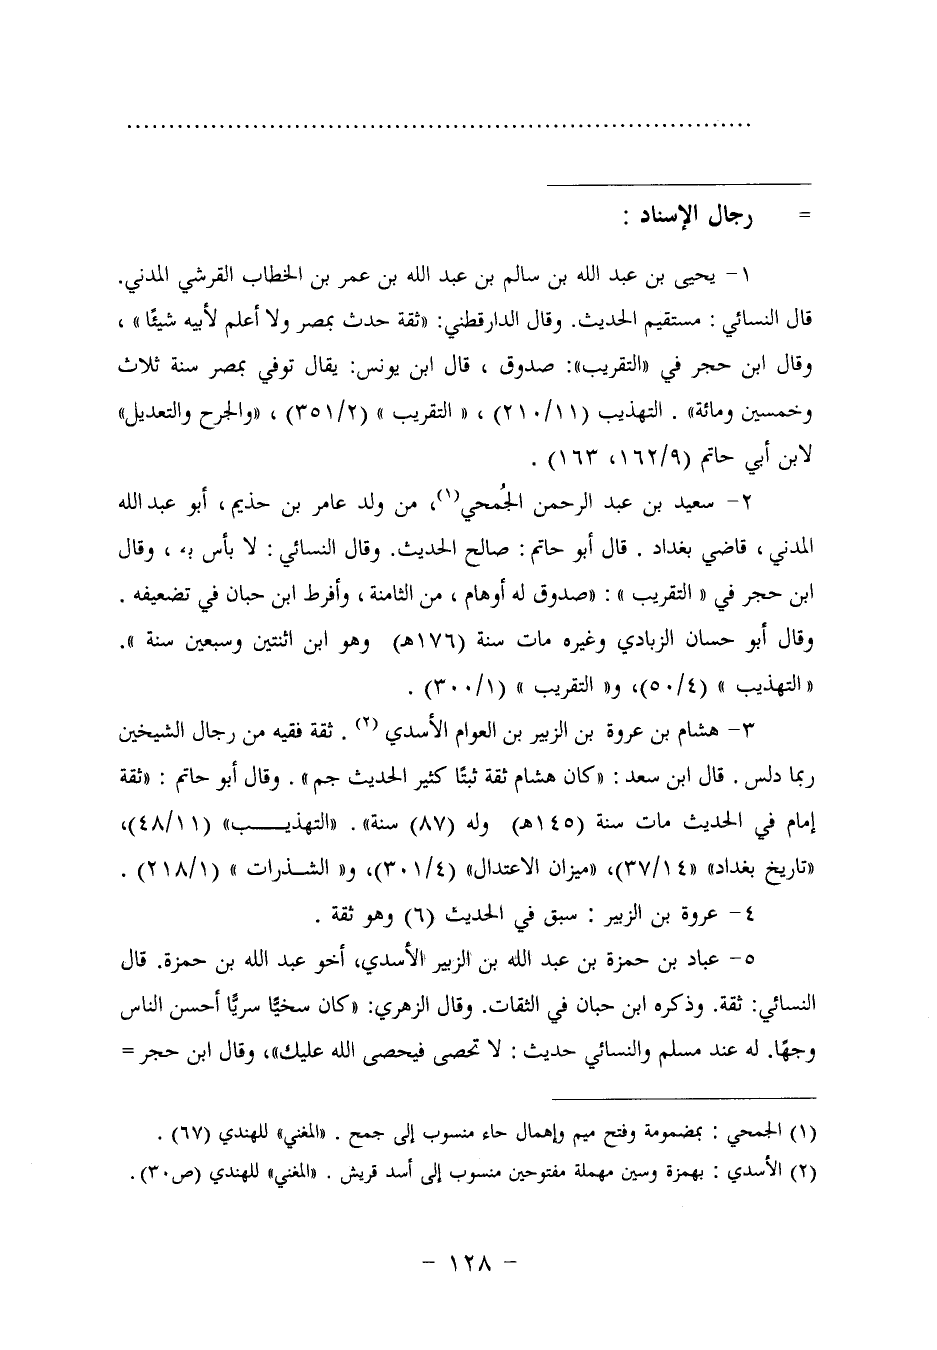 ................................................................................
= رجال الإسناد :
١- يحيى بن عبد الله بن سالم بن عبد الله بن عمر بن الخطاب القرشي المدني.
قال النسائي : مستقيم الحديث. وقال الدارقطني: «ثقة حدث بمصر ولا أعلم لأبيه شيئًا» ،
وقال ابن حجر في «التقريب»: صدوق ، قال ابن يونس: يقال توفي بمصر سنة ثلاث
وخمسين ومائة» . التهذيب (٢١٠/١١) ، « التقريب » (٣٥١/٢) ، «والجرح والتعديل»
لابن أبي حاتم (١٦٢/٩، ١٦٣) .
٢- سعيد بن عبد الرحمن الجُمحي(١)، من ولد عامر بن حذيم ، أبو عبد الله
المدني ، قاضي بغداد . قال أبو حاتم : صالح الحديث. وقال النسائي : لا بأس به ، وقال
ابن حجر في « التقريب » : «صدوق له أوهام ، من الثامنة ، وأفرط ابن حبان في تضعيفه .
وقال أبو حسان الزيادي وغيره مات سنة (١٧٦هـ) وهو ابن اثنتين وسبعين سنة ».
« التهذيب » (٥٠/٤)، و« التقريب » (٣٠٠/١) .
٣- هشام بن عروة بن الزبير بن العوام الأسدي (٢) . ثقة فقيه من رجال الشيخين
ربما دلس . قال ابن سعد : «كان هشام ثقة ثبتًا كثير الحديث جم» . وقال أبو حاتم : «ثقة
إمام في الحديث مات سنة (١٤٥هـ) وله (٨٧) سنة» . «التهذيـــب» (٤٨/١١)،
«تاريخ بغداد» «٣٧/١٤)، «ميزان الاعتدال» (٣٠١/٤)، و« الشـذرات » (٢١٨/١) .
٤- عروة بن الزبير : سبق في الحديث (٦) وهو ثقة .
٥- عباد بن حمزة بن عبد الله بن الزبير الأسدي، أخو عبد الله بن حمزة. قال
النسائي: ثقة. وذكره ابن حبان في الثقات. وقال الزهري: «كان سخيًّا سريًّا أحسن الناس
وجهًا. له عند مسلم والنسائي حديث : لا تحصى فيحصى الله عليك»، وقال ابن حجر =
(١) الجمحي : بمضمومة وفتح ميم وإهمال حاء منسوب إلى جمح . «المغني» للهندي (٦٧) .
(٢) الأسدي : بهمزة وسين مهملة مفتوحين منسوب إلى أسد قريش . «المغني» للهندي (ص٣٠).
- ١٢٨ -